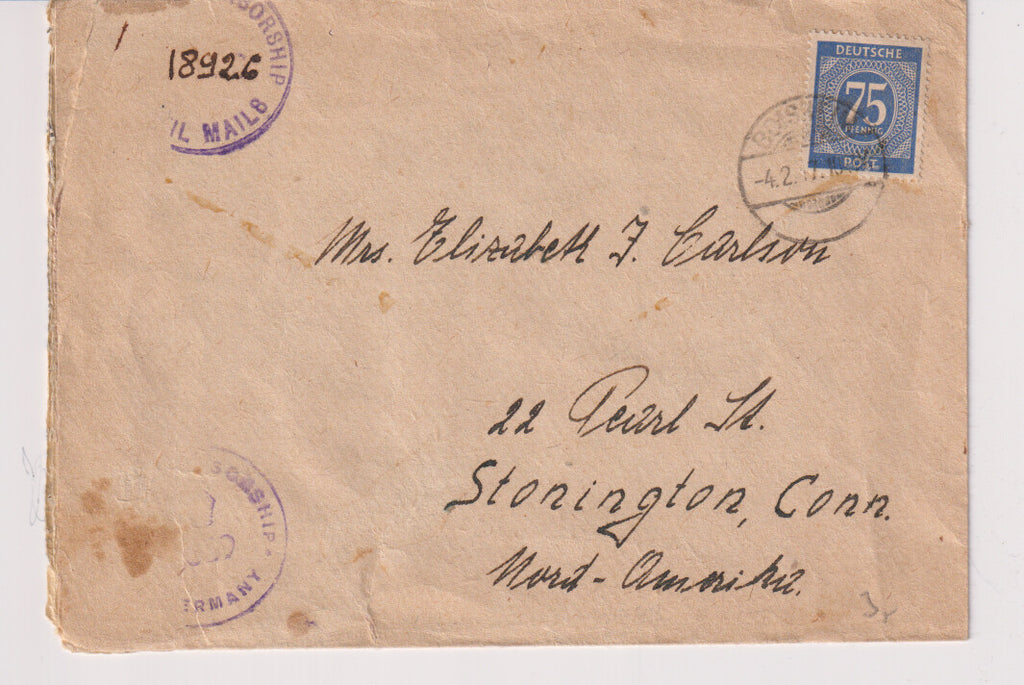 18926
IL MAILS
DEUTSCHE
75
PFENNIG
POST
-4.2.
Mrs. Elizabeth F. Carlson
22 Pearl St.
Stonington, Conn.
Nord-Amerika.
SORSHIP
ERMANY